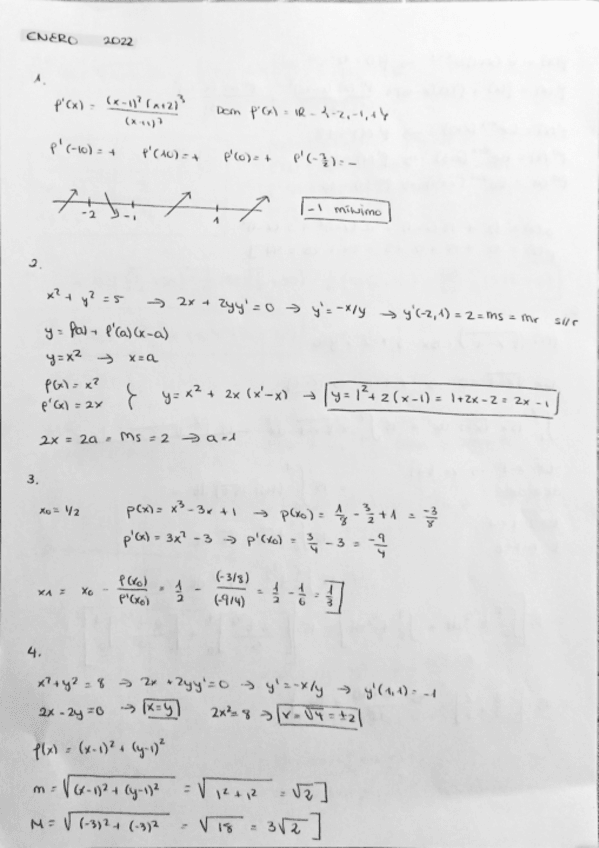 ENERO 2022
1.
f'(x) = (x-1)² (x+2)³ / (x+1)³ Dom f'(x) = IR - {-2, -1, +}
f'(-10) = + f'(10) = + f'(0) = + f'(-3/2) = -
-2 -1 1 -1 mínimo
2.
x² + y² = 5 → 2x + 2yy' = 0 → y' = -x/y → y'(-2,1) = 2 = ms = mr
y = f(a) + f'(a)(x-a)
y = x² → x = a
f(x) = x²
f'(x) = 2x } y = x² + 2x (x'-x) → y = 1² + 2(x-1) = 1+2x-2 = 2x-1
2x = 2a = ms = 2 → a = 1
3.
x0 = 1/2 f(x) = x³ - 3x + 1 → f(x0) = 1/8 - 3/2 + 1 = -3/8
f'(x) = 3x² - 3 → f'(x0) = 3/4 - 3 = -9/4
x1 = x0 - f(x0)/f'(x0) = 1/2 - (-3/8)/(-9/4) = 1/2 - 1/6 = 1/3
4.
x² + y² = 8 → 2x + 2yy' = 0 → y' = -x/y → y'(1,1) = -1
2x - 2y = 0 → x = y 2x² = 8 → x = √4 = ±2
f(x) = (x-1)² + (y-1)²
m = √(x-1)² + (y-1)² = √1² + 1² = √2
M = √(-3)² + (-3)² = √18 = 3√2